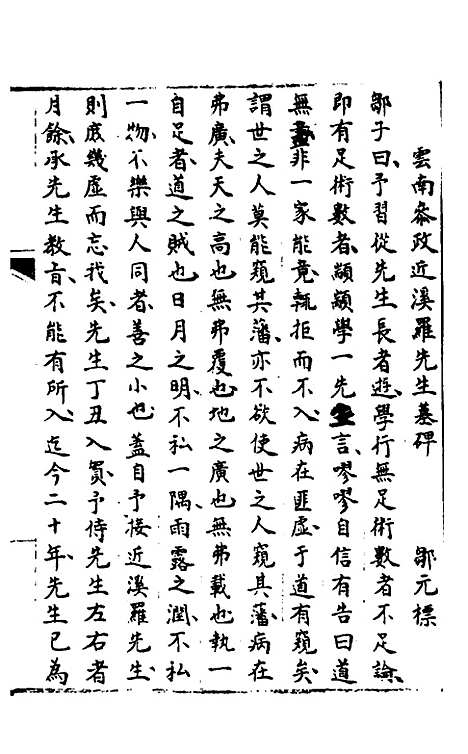 雲南叅政近溪羅先生墓碑　鄒元標
鄒子曰予習從先生長者遊學行無足術數者不足論
即有足術數者顓顓學一先生言嘐嘐自信有告曰道
無盡非一家能竟輒拒而不入病在匪虛于道有窺矣
謂世之人莫能窺其藩亦不欲使世之人窺其藩病在
弗廣夫天之高也無弗覆也地之廣也無弗載也執一
自足者道之賊也日月之明不私一隅雨露之潤不私
一物不樂與人同者善之小也蓋自予接近溪羅先生
則庶幾虛而忘我矣先生丁丑入賀予侍先生左右者
月餘承先生教旨不能有所入迄今二十年先生已為